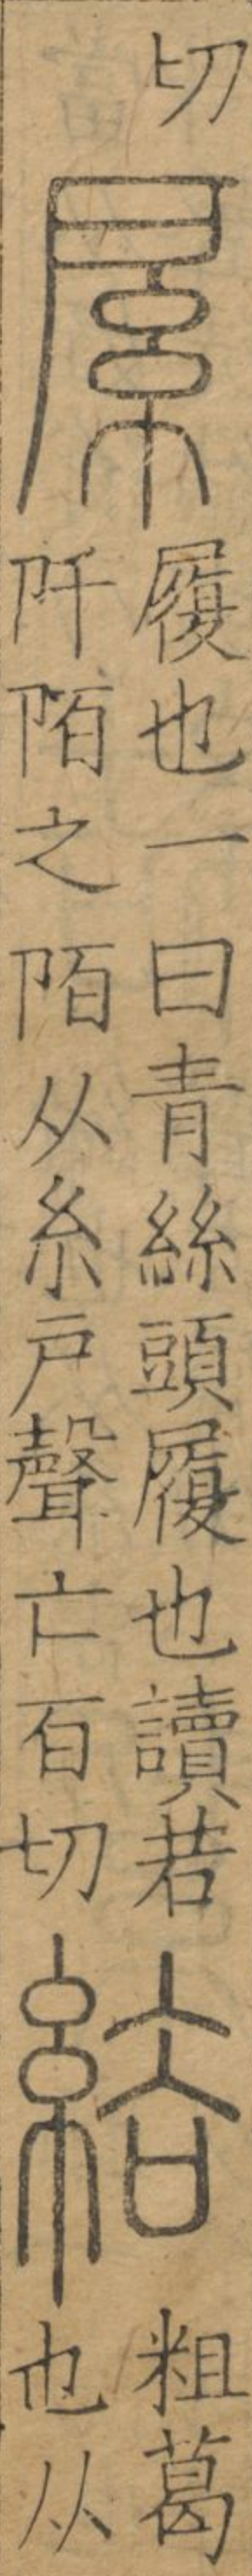 切
履也一曰青絲頭履也讀若
阡陌之陌从糸戶聲亡百切
綌
粗葛
也从